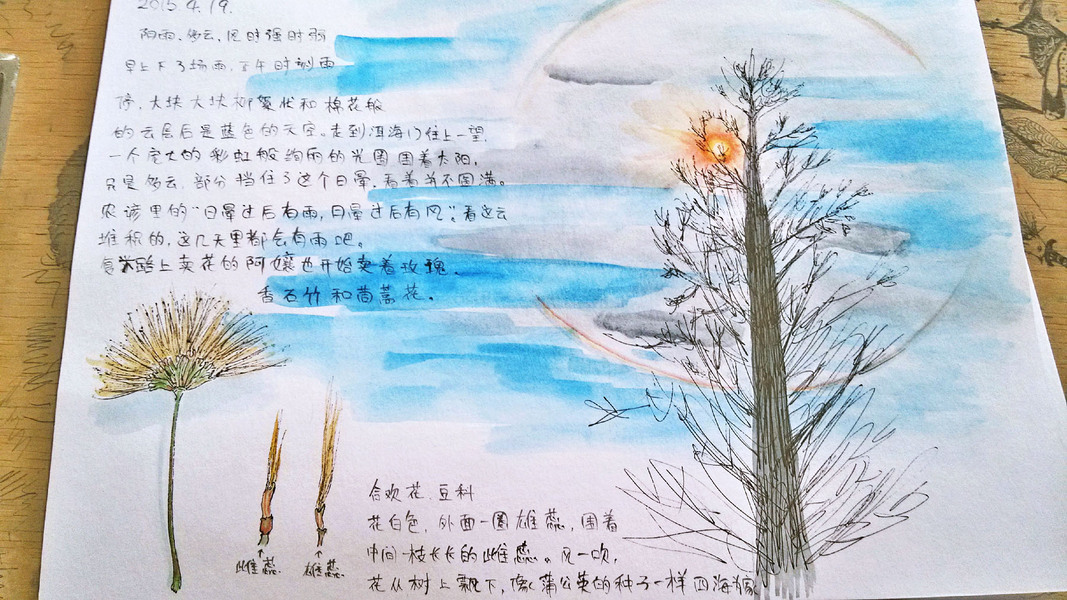 2015.4.19.
阳雨.多云,风时强时弱
早上下了场雨.正午时刻雨
停.大块大块柳絮状和棉花般
的云层后是蓝色的天空。走到洱海门往上一望,
一个庞大的彩虹般绚丽的光圈围着太阳,
只是多云.部分挡住了这个日晕,看着并不圆满。
农谚里的“日晕过后有雨,月晕过后有风”。看这云
堆积的,这几天里都会有雨吧。
路上卖花的阿孃也开始卖着玫瑰.
香石竹和茼蒿花.
雌蕊. 雄蕊.
合欢花.豆科
花白色,外面一圈雄蕊,围着
中间一枝长长的雌蕊。风一吹,
花从树上飘下,像蒲公英的种子一样四海为家